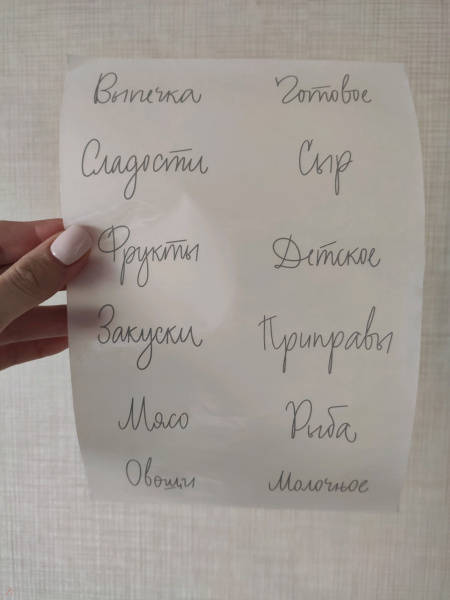 Выпечка Готовое
Сладости Сыр
Фрукты Детское
Закуски Приправы
Мясо Рыба
Овощи Молочное